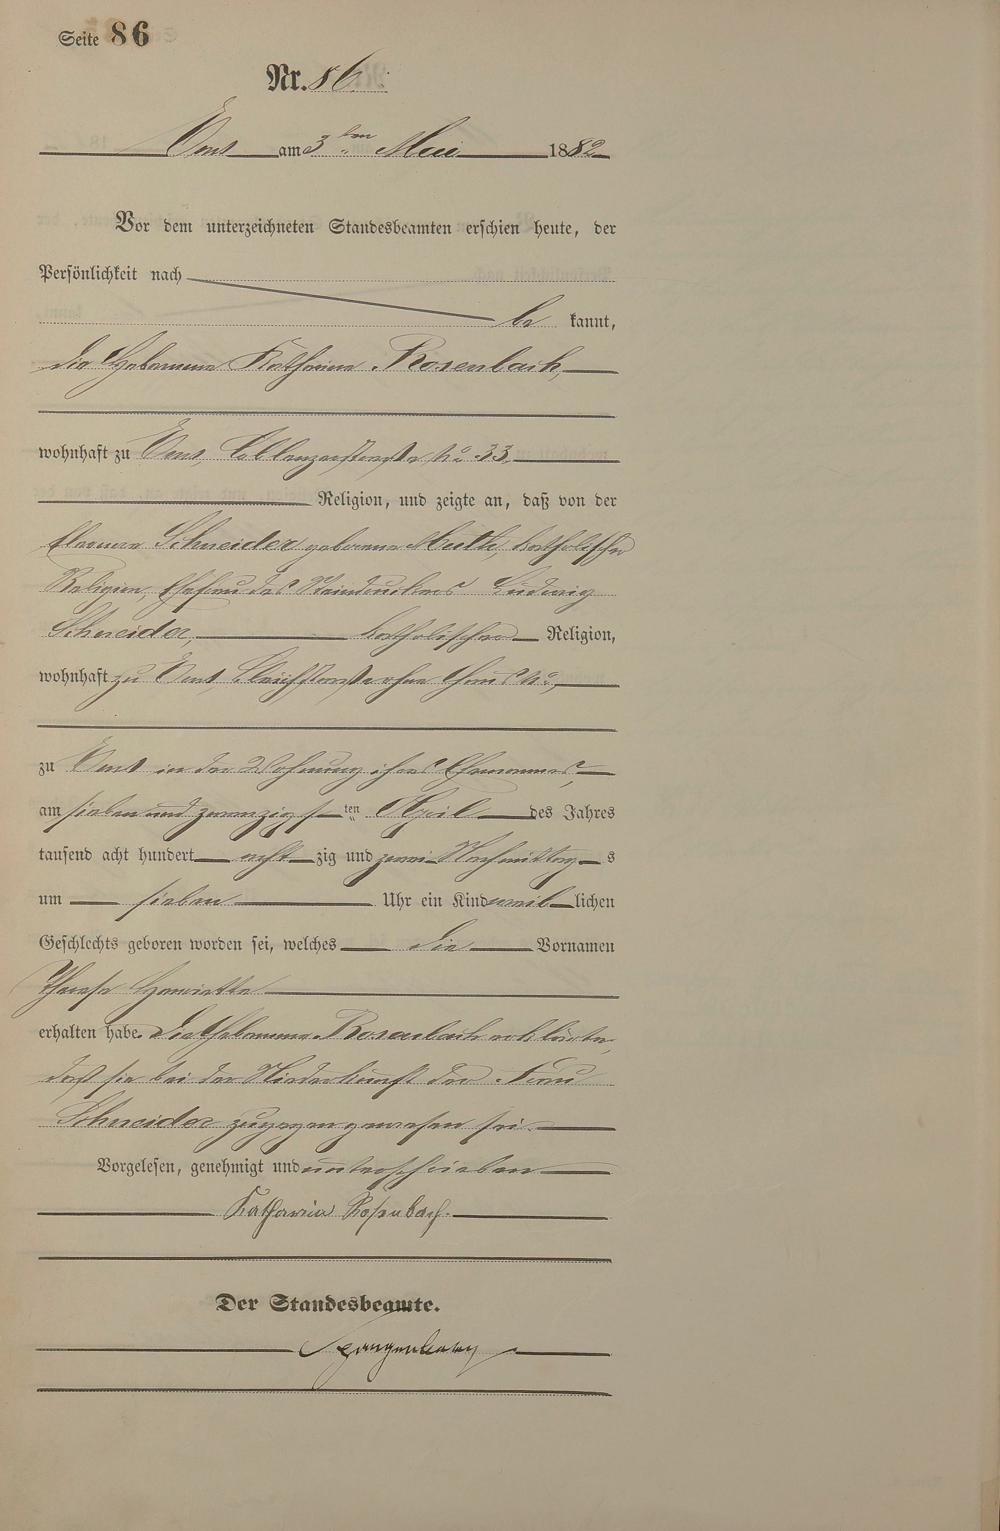 Seite 86
Nr. 86.
Ems am 3ten Mai 1882
Vor dem unterzeichneten Standesbeamten erschien heute, der
Persönlichkeit nach
be kannt,
die Hebamme Katharina Rosenbach,
wohnhaft zu Ems, Coblenzerstraße No 33
Religion, und zeigte an, daß von der
Eleonore Schneider geborenen Muth, katholischer
Religion, Ehefrau des Ludwig
Schneider, katholischer Religion,
wohnhaft zu Ems,
zu Ems in der Wohnung ihres Ehemannes,
am sieben und zwanzigsten April des Jahres
tausend acht hundert acht zig und zwei Nachmittag s
um sieben Uhr ein Kind weib lichen
Geschlechts geboren worden sei, welches die Vornamen
Therese Henriette
erhalten habe. Die Hebamme Rosenbach erklärte,
daß sie bei der Niederkunft der Frau
Schneider zugegen gewesen sei.
Vorgelesen, genehmigt und unterschrieben
Katharina Rosenbach.
Der Standesbeamte.
Spangenberg